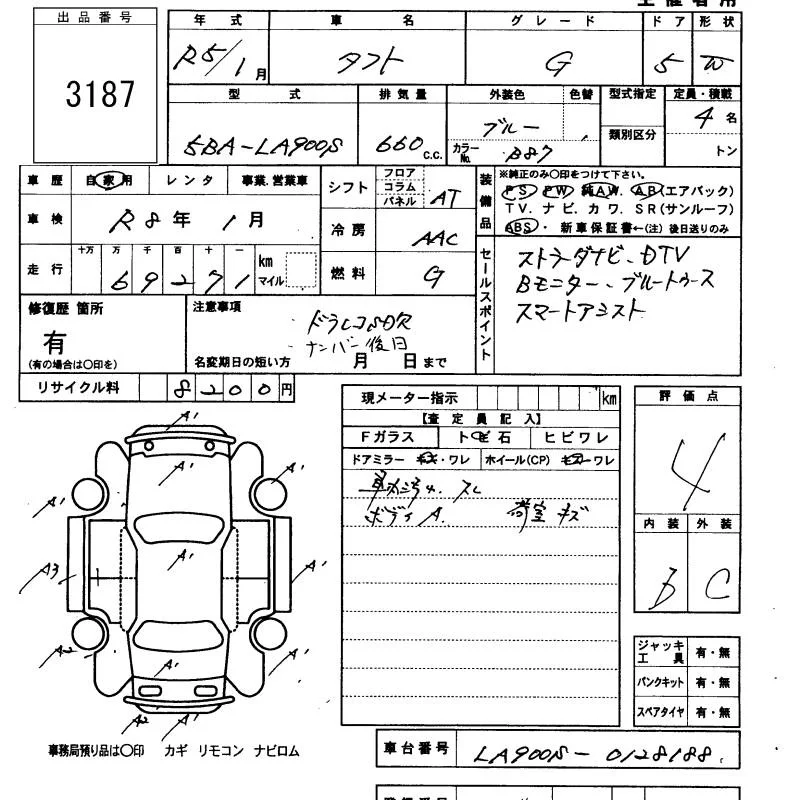 出品番号
3187
年式 車名 グレード ドア 形状
R5/1月 タフト G 5 W
型式 排気量 外装色 色替 型式指定 定員・積載
5BA-LA900S 660 C.C. ブルー 4名
カラーNo. B87 類別区分 トン
車歴 自家用 レンタ 事業.営業車
車検 R8年1月
走行 十万 万 千 百 十 一
69271 km マイル
シフト フロア コラム パネル AT
冷房 AAC
燃料 G
装備品
※純正のみ〇印をつけて下さい。
PS PW 純AW. AB(エアバック)
TV. ナビ. カワ. SR(サンルーフ)
ABS・ 新車保証書←(注)後日送りのみ
セールスポイント
ストラーダナビ、DTV
Bモニター、ブルートゥース
スマートアシスト
修復歴 箇所
有
(有の場合は〇印を)
注意事項
ドラレコSD欠
ナンバー後日
名変期日の短い方 月 日まで
リサイクル料 8200円
現メーター指示 km
【査定員記入】
Fガラス トビ石 ヒビワレ
ドアミラー キズ・ワレ ホイール(CP) キズ・ワレ
ボディA. 荷室キズ
評価点
4
内装 外装
B C
A'
A'
A' A'
A' A'
A3 A'
A2 A' A'
A2 A'
ジャッキ工具 有・無
パンクキット 有・無
スペアタイヤ 有・無
事務局預り品は〇印 カギ リモコン ナビロム
車台番号 LA900S-0128188